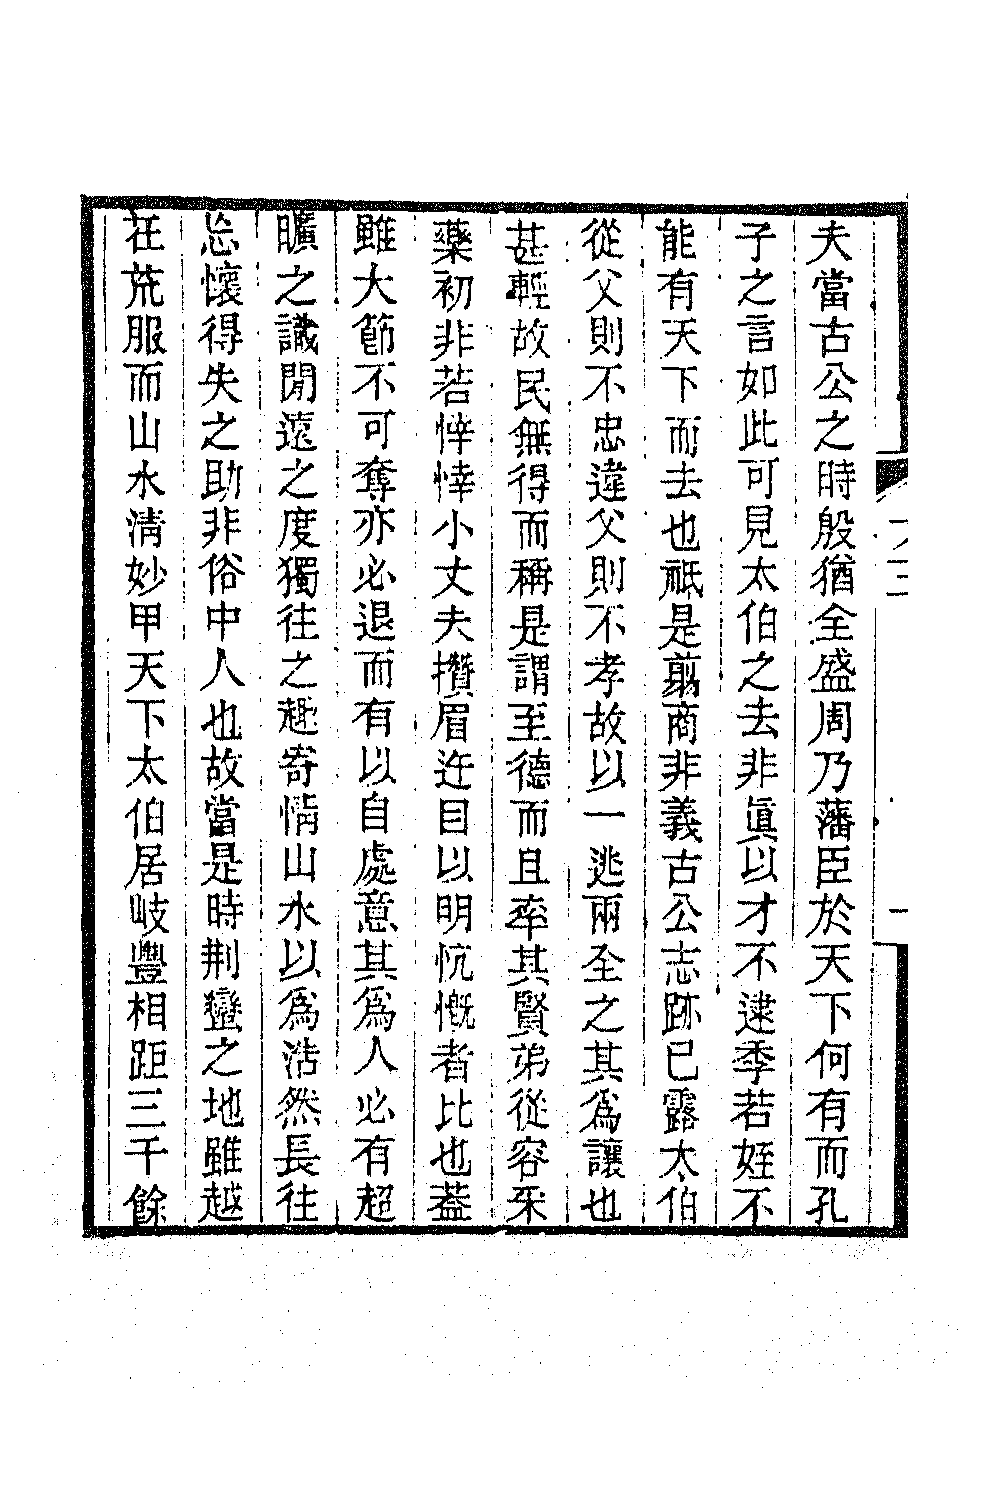 夫當古公之時殷猶全盛周乃藩臣於天下何有而孔
子之言如此可見太伯之去非眞以才不逮季若姪不
能有天下而去也祗是翦商非義古公志跡已露太伯
從父則不忠違父則不孝故以一逃兩全之其爲讓也
甚輕故民無得而稱是謂至德而且率其賢弟從容采
藥初非若悻悻小丈夫攢眉迕目以明忼慨者比也葢
雖大節不可奪亦必退而有以自處意其爲人必有超
曠之識閒遠之度獨往之趣寄情山水以爲浩然長往
忘懷得失之助非俗中人也故當是時荆蠻之地雖越
在荒服而山水清妙甲天下太伯居岐豐相距三千餘